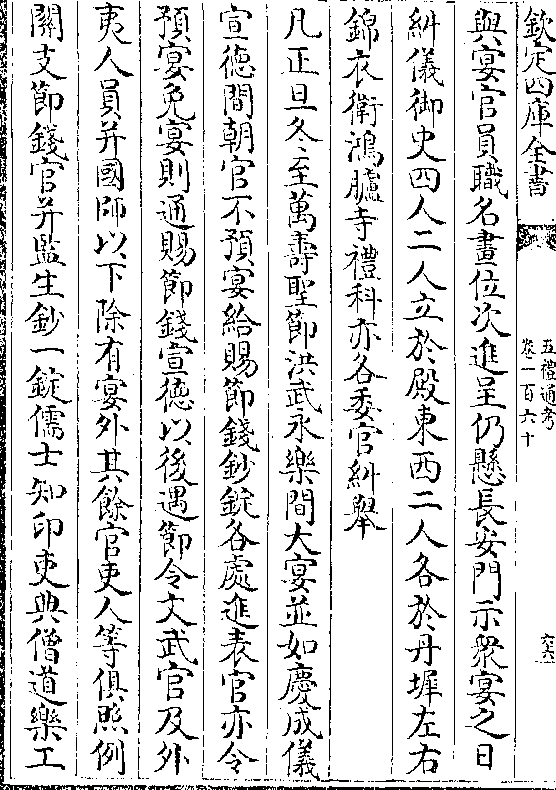 欽定四庫全書
五禮通考
卷一百六十
與宴官員職名畫位次進呈仍懸長安門示衆宴之日
糾儀御史四人二人立於殿東西二人各於丹墀左右
錦衣衛鴻臚寺禮科亦各委官糾舉
凡正旦冬至萬壽聖節洪武永樂間大宴並如慶成儀
宣徳間朝官不預宴給賜節錢鈔錠各處進表官亦令
預宴免宴則通賜節錢宣徳以後遇節令文武官及外
夷人員并國師以下除有宴外其餘官吏人等俱照例
關支節錢官并監生鈔一錠儒士知印吏典僧道樂工